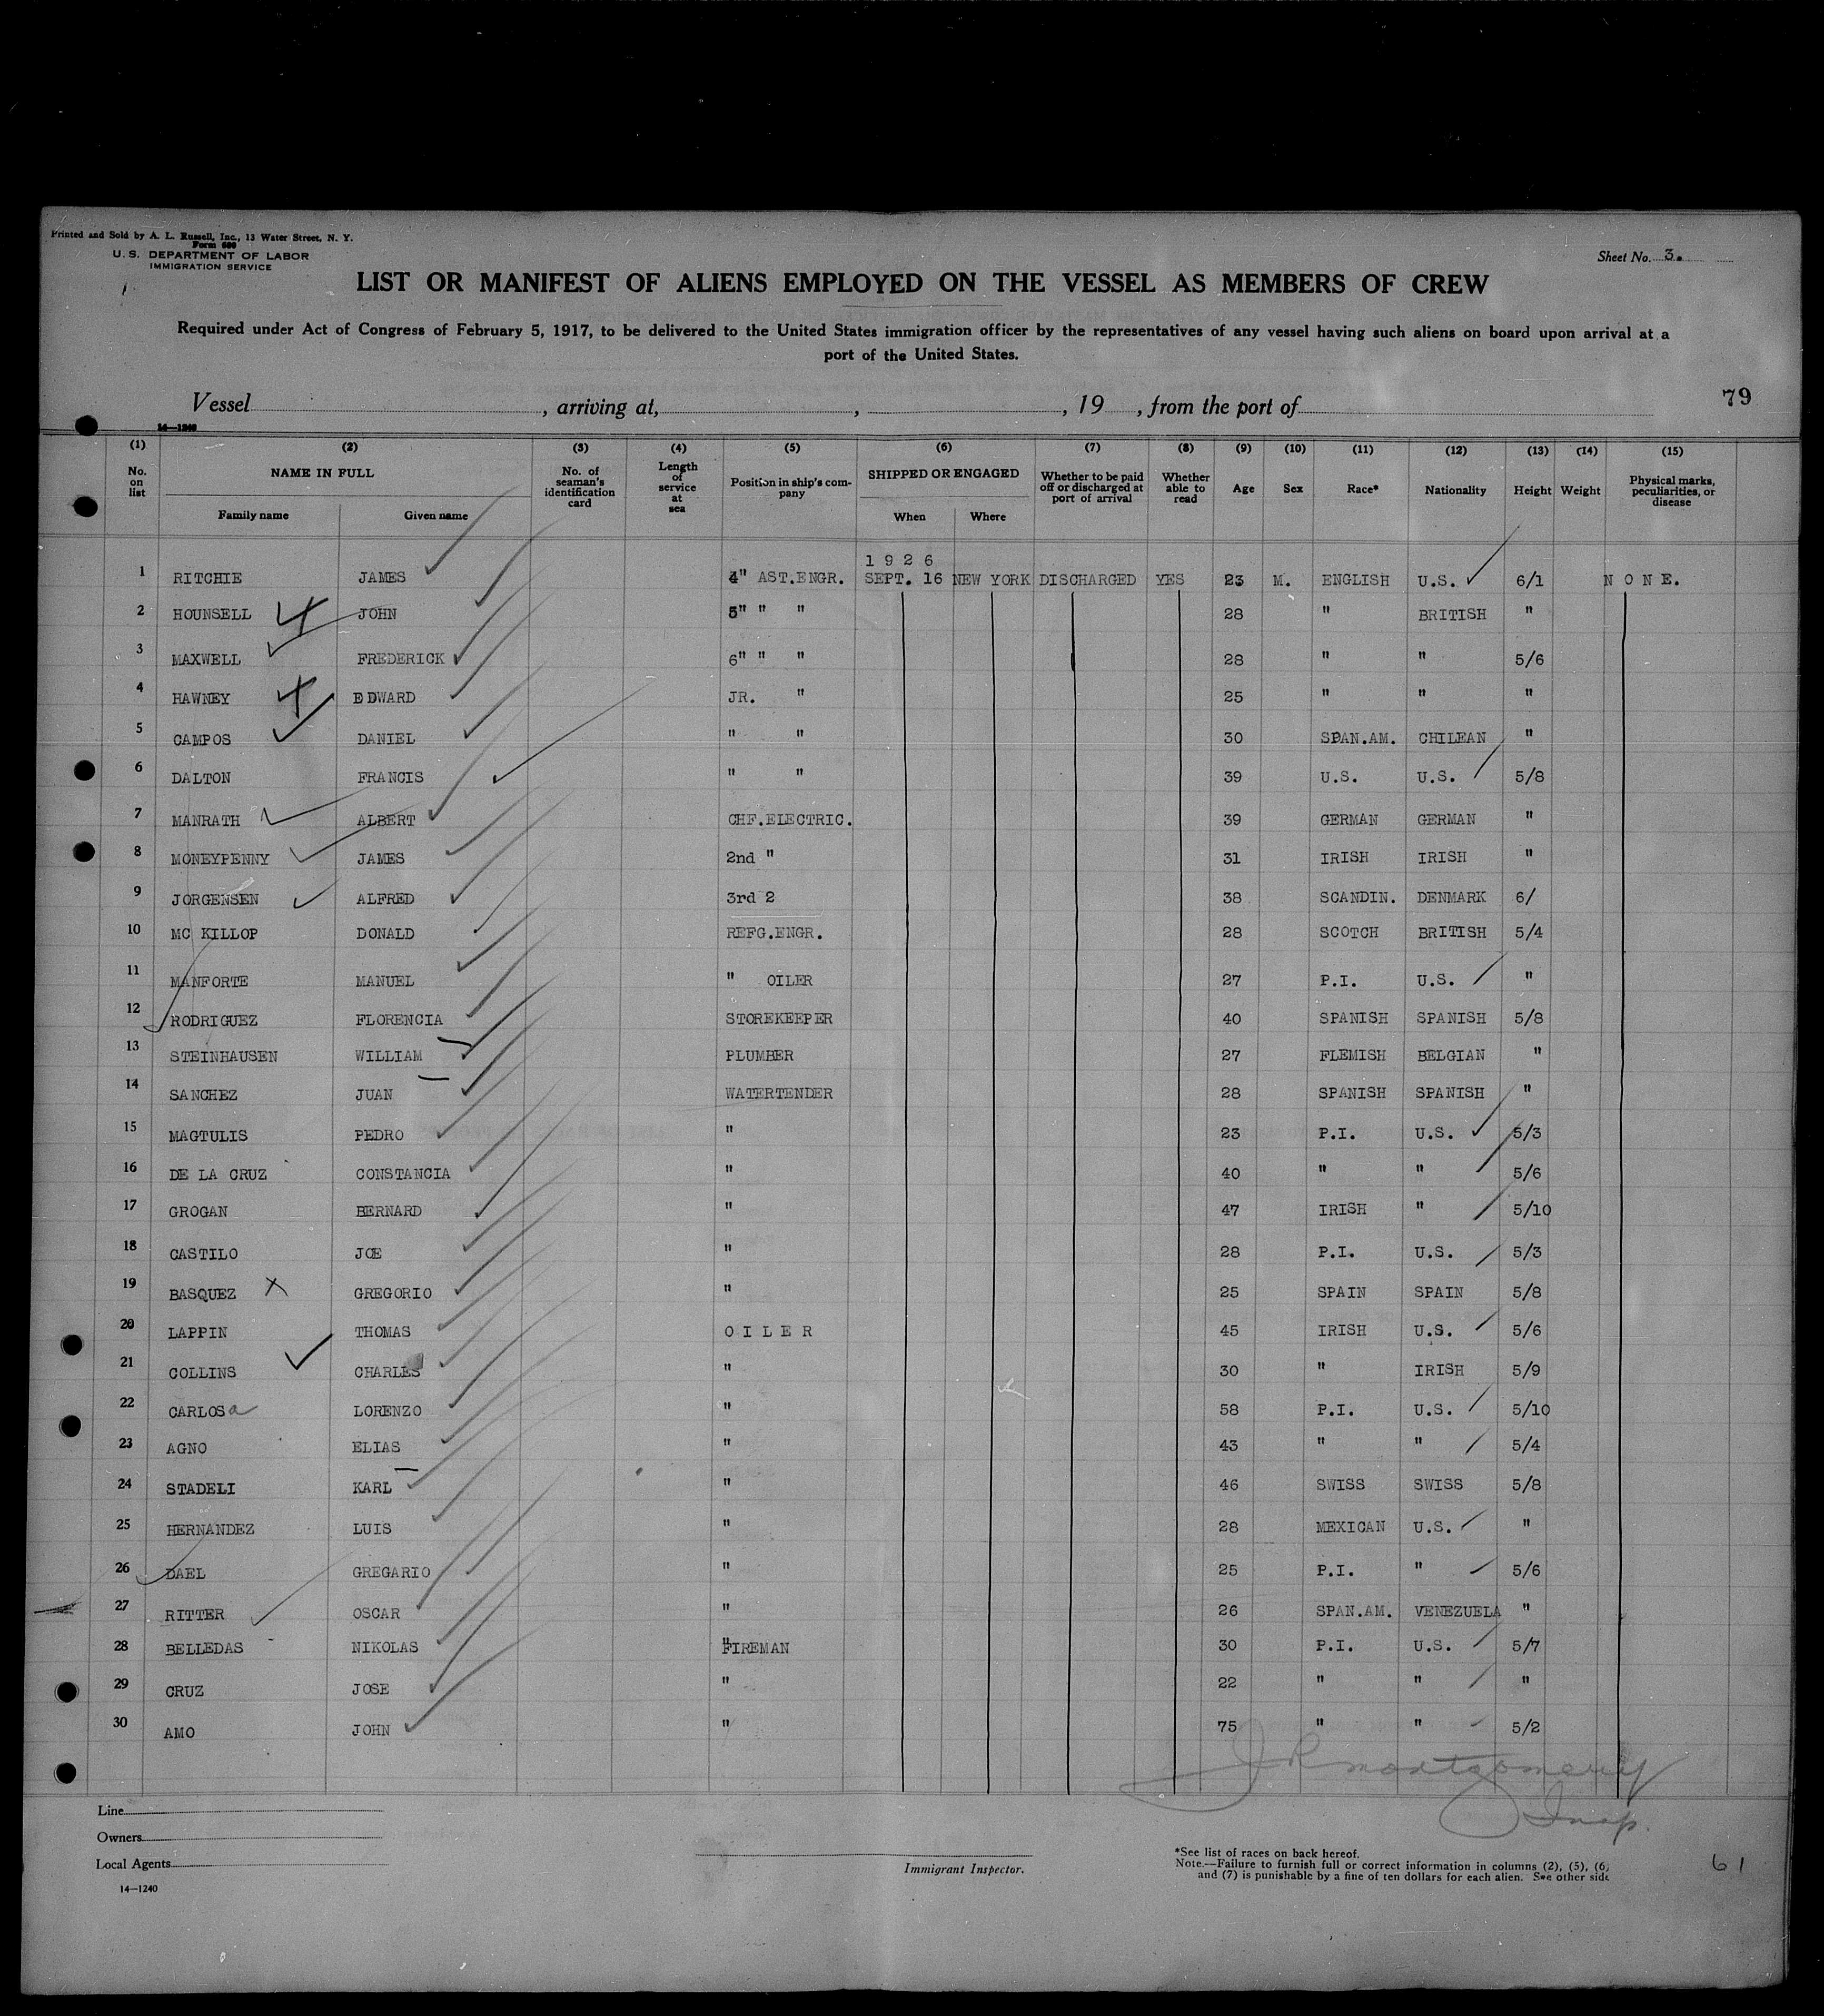 Printed and Sold by A. L. Russell, Inc., 13 Water Street, N. Y.
Form 680
U. S. DEPARTMENT OF LABOR
IMMIGRATION SERVICE
Sheet No. 3.
LIST OR MANIFEST OF ALIENS EMPLOYED ON THE VESSEL AS MEMBERS OF CREW
Required under Act of Congress of February 5, 1917, to be delivered to the United States immigration officer by the representatives of any vessel having such aliens on board upon arrival at a
port of the United States.
Vessel , arriving at, , , 19 , from the port of 79
14—1240
(1) (2) (3) (4) (5) (6) (7) (8) (9) (10) (11) (12) (13) (14) (15)
No. on list NAME IN FULL No. of seaman's identification card Length of service at sea Position in ship's company SHIPPED OR ENGAGED Whether to be paid off or discharged at port of arrival Whether able to read Age Sex Race* Nationality Height Weight Physical marks, peculiarities, or disease
Family name Given name When Where
1926
1 RITCHIE JAMES 4" AST.ENGR. SEPT. 16 NEW YORK DISCHARGED YES 23 M. ENGLISH U.S. 6/1 N O N E.
2 HOUNSELL JOHN 5" " " 28 " BRITISH "
3 MAXWELL FREDERICK 6" " " 28 " " 5/6
4 HAWNEY EDWARD JR. " 25 " " "
5 CAMPOS DANIEL " " 30 SPAN.AM. CHILEAN "
6 DALTON FRANCIS " " 39 U.S. U.S. 5/8
7 MANRATH ALBERT CHF.ELECTRIC. 39 GERMAN GERMAN "
8 MONEYPENNY JAMES 2nd " 31 IRISH IRISH "
9 JORGENSEN ALFRED 3rd 2 38 SCANDIN. DENMARK 6/
10 MC KILLOP DONALD REFG.ENGR. 28 SCOTCH BRITISH 5/4
11 MANFORTE MANUEL " OILER 27 P.I. U.S. "
12 RODRIGUEZ FLORENCIA STOREKEEPER 40 SPANISH SPANISH 5/8
13 STEINHAUSEN WILLIAM PLUMBER 27 FLEMISH BELGIAN "
14 SANCHEZ JUAN WATERTENDER 28 SPANISH SPANISH "
15 MAGTULIS PEDRO " 23 P.I. U.S. 5/3
16 DE LA CRUZ CONSTANCIA " 40 " " 5/6
17 GROGAN BERNARD " 47 IRISH " 5/10
18 CASTILO JOE " 28 P.I. U.S. 5/3
19 BASQUEZ GREGORIO " 25 SPAIN SPAIN 5/8
20 LAPPIN THOMAS O I L E R 45 IRISH U.S. 5/6
21 COLLINS CHARLES " 30 " IRISH 5/9
22 CARLOSa LORENZO " 58 P.I. U.S. 5/10
23 AGNO ELIAS " 43 " " 5/4
24 STADELI KARL " 46 SWISS SWISS 5/8
25 HERNANDEZ LUIS " 28 MEXICAN U.S. "
26 DAEL GREGARIO " 25 P.I. " 5/6
27 RITTER OSCAR " 26 SPAN.AM. VENEZUELA "
28 BELLEDAS NIKOLAS "FIREMAN 30 P.I. U.S. 5/7
29 CRUZ JOSE " 22 " " "
30 AMO JOHN " 75 " " 5/2
J R Montgomery
Insp.
Line
Owners
Local Agents
14—1240
Immigrant Inspector.
*See list of races on back hereof.
Note.—Failure to furnish full or correct information in columns (2), (5), (6)
and (7) is punishable by a fine of ten dollars for each alien. See other side
61